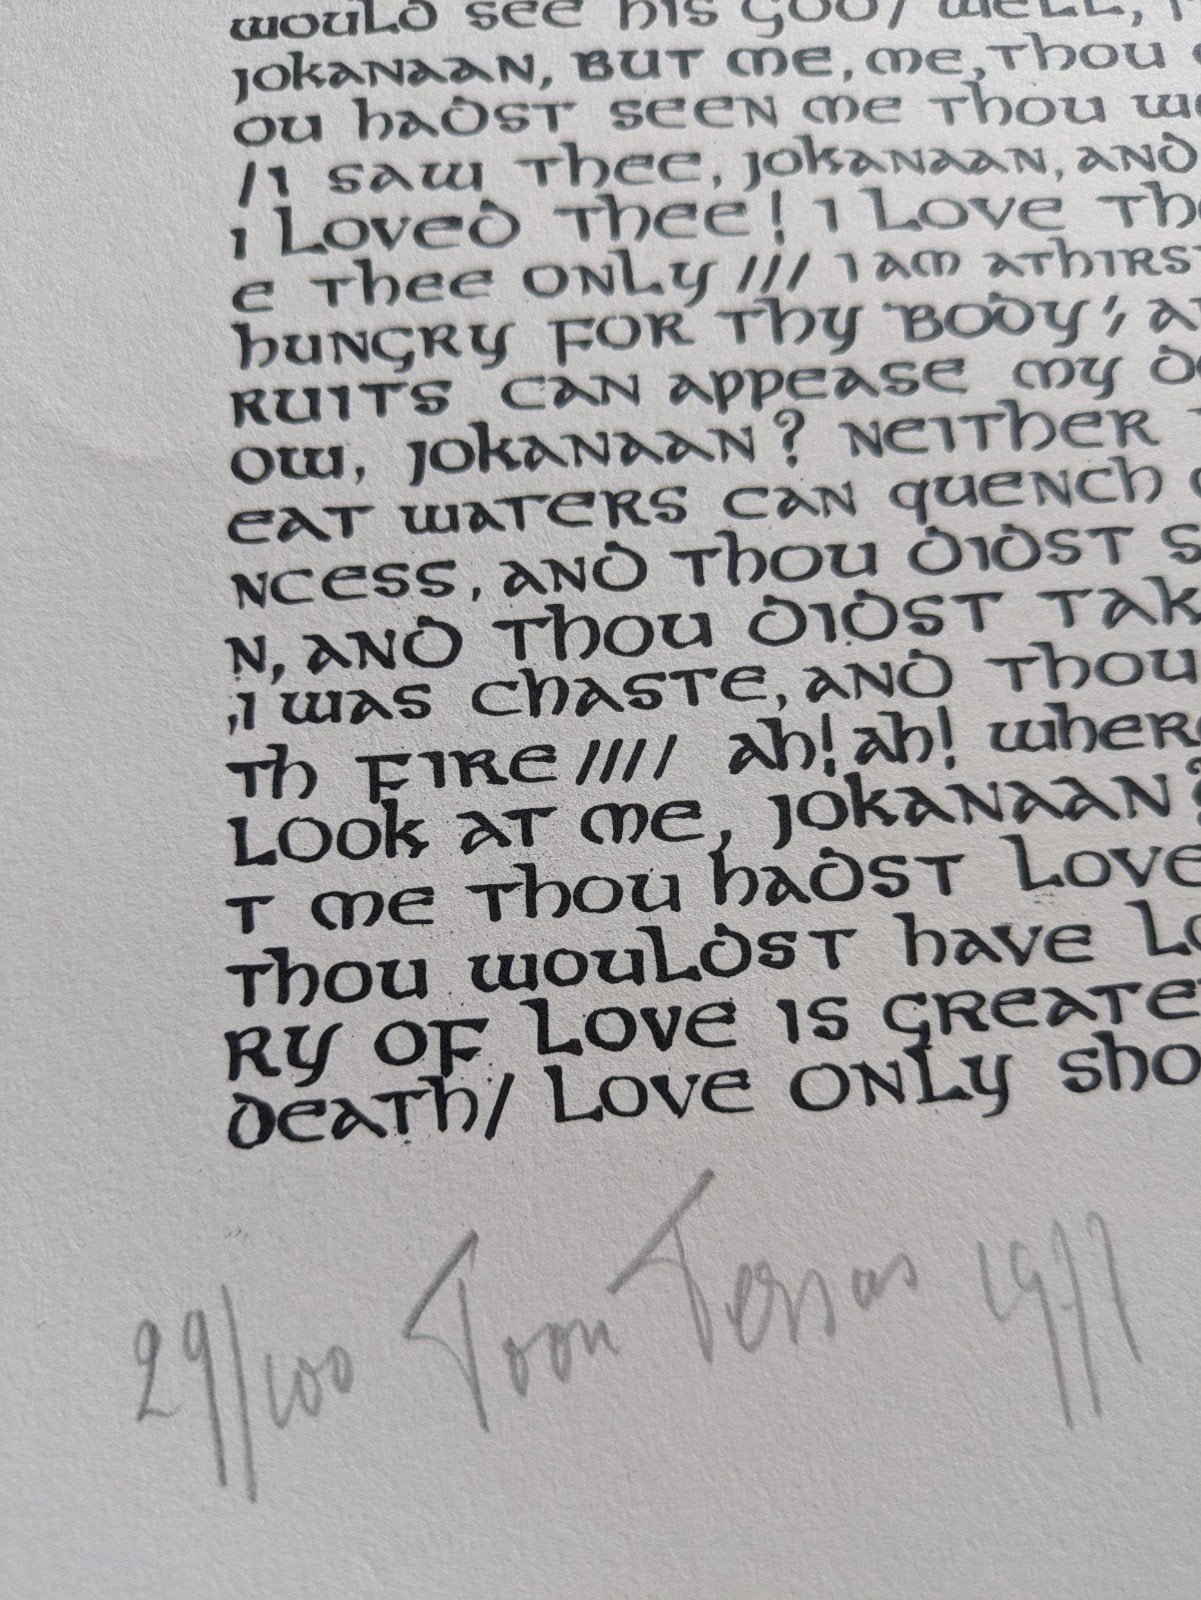 would see his God/ well,
Jokanaan, but me, me, thou
ou hadst seen me thou
/I saw thee, Jokanaan, and
I loved thee! I love th
e thee only/// I am athirs
hungry for thy 'body', a
ruits can appease my d
ow, Jokanaan? Neither
eat waters can quench
ncess, and thou didst s
n, and thou didst tak
,I was chaste, and thou
th fire//// Ah! ah! wher
Look at me, Jokanaan?
t me thou hadst love
thou wouldst have lo
ry of love is greate
death/ Love only sho
29/100 Toon Tersas 1977